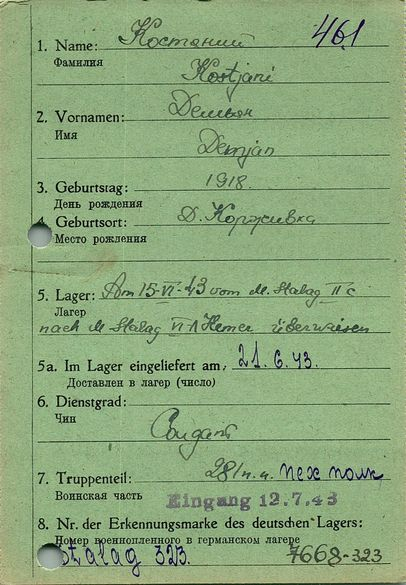 461
1. Name: Костяний
Фамилия
Kostjani
2. Vornamen: Демьян
Имя
Demjan
3. Geburtstag: 1918.
День рождения
4. Geburtsort: Д. Корживка
Место рождения
5. Lager: Am 15-VI-43 vom M. Stalag II c
Лагер
nach M Stalag VI A Hemer überwiesen
5a. Im Lager eingeliefert am, 21.6.43.
Доставлен в лагер (число)
6. Dienstgrad:
Чин
Солдат
7. Truppenteil: 281 п.п. пех полк
Воинская часть
Eingang 12.7.43
8. Nr. der Erkennungsmarke des deutschen Lagers:
Номер военнопленного в германском лагере
Stalag 323. 7668-323